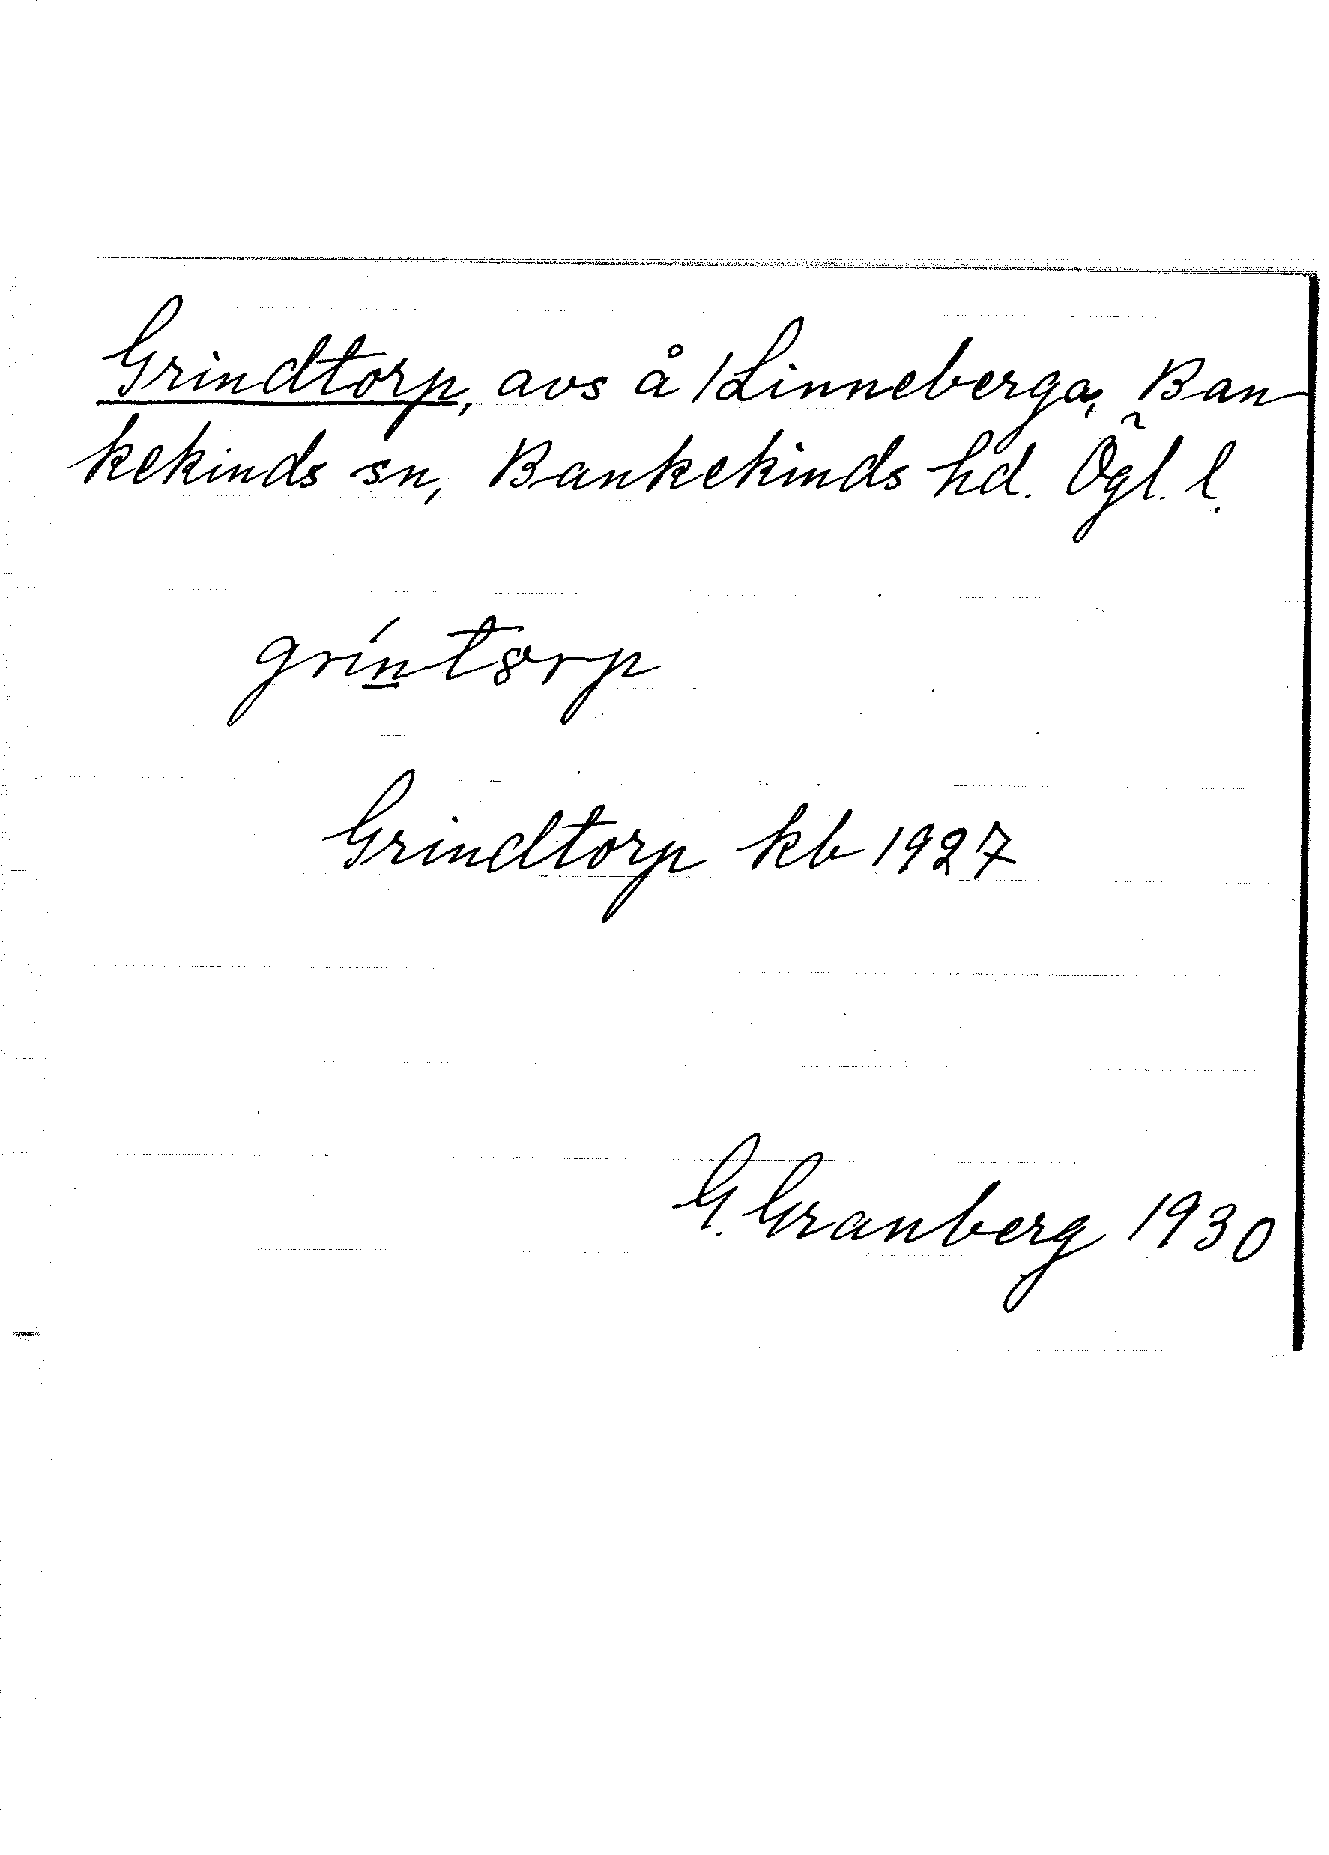 Grindtorp, avs å /Linneberga, Ban
kekinds sn, Bankekinds hd. Ögl. l.
Grindtorp kb 1927
G. Granberg 1930